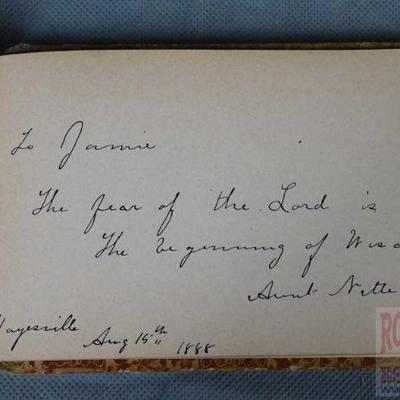 To Jamie
The fear of the Lord is
The beginning of Wisd
Aunt Nette
Hayesville Aug 15th 1888
RO